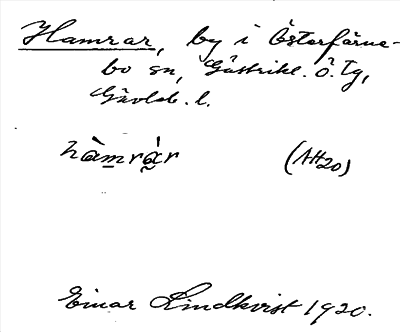 Hamrar, by i Österfärne-
bo sn, Gästrikl. ö. tg,
Gävleb. l.
hàmrár (AH20)
Einar Lindkvist 1920.